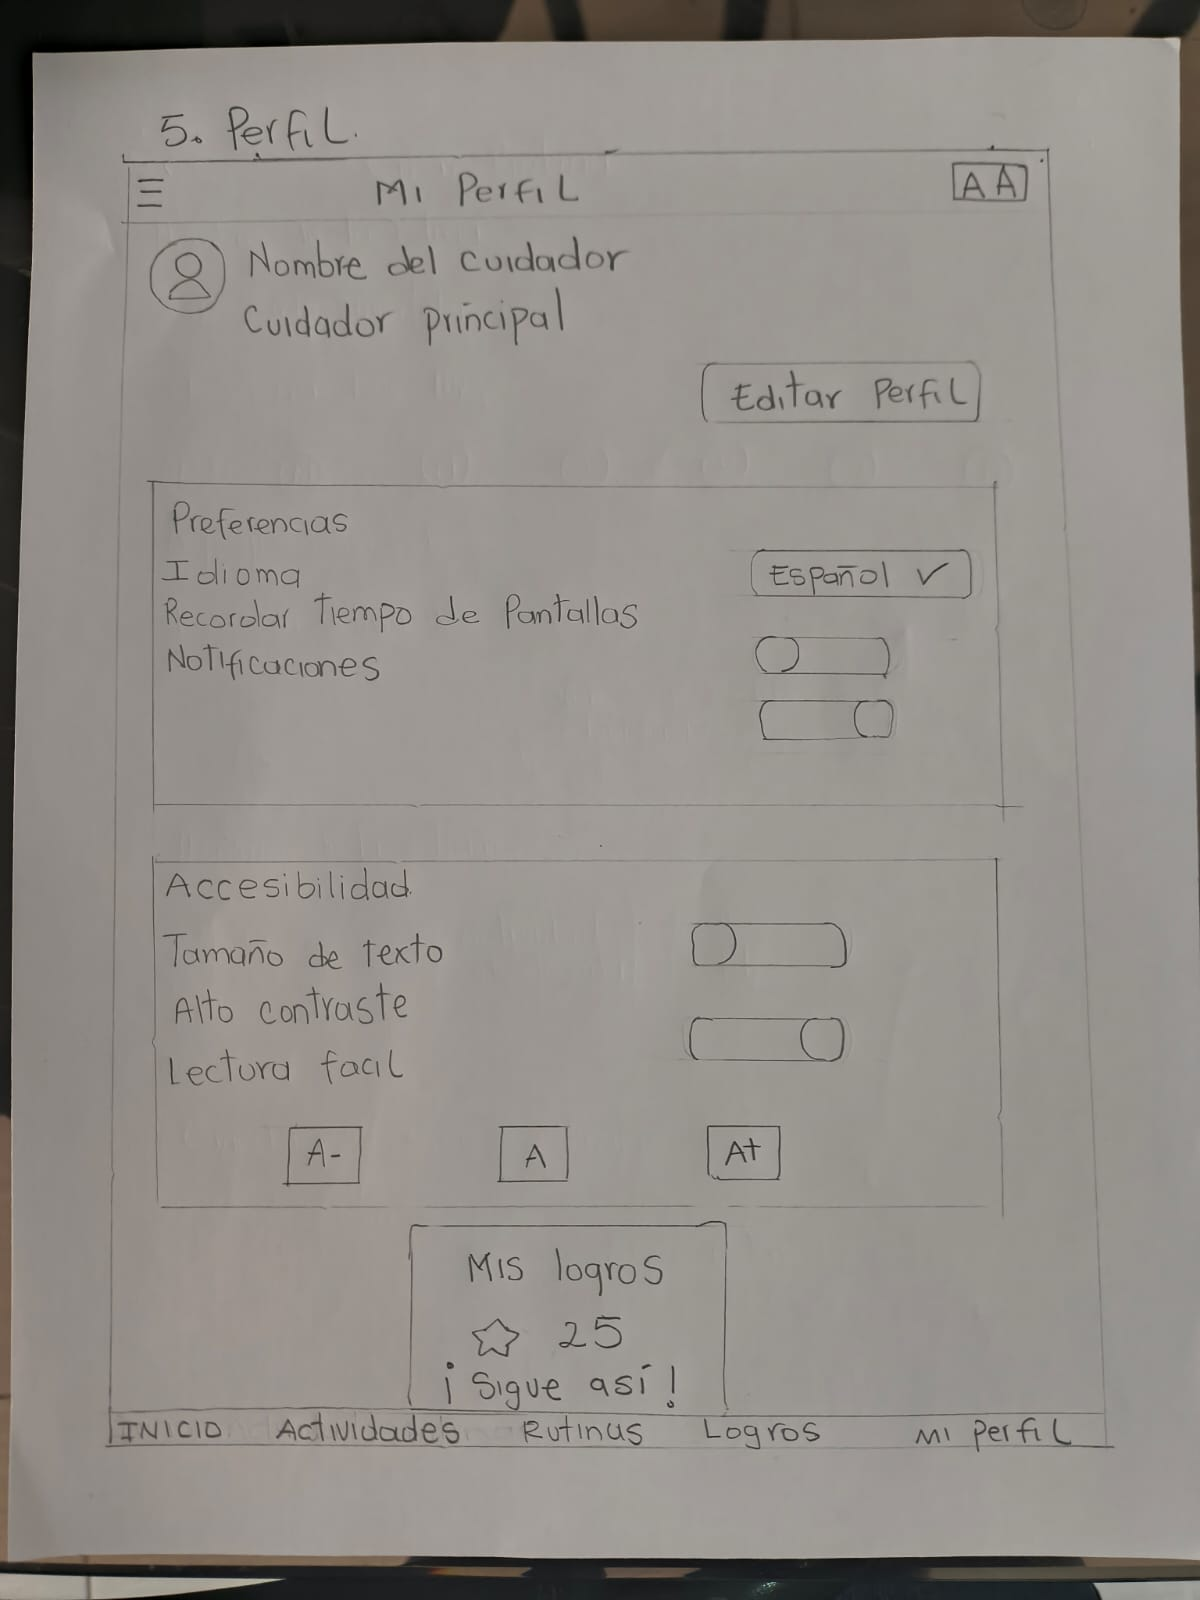 5. Perfil.
Mi Perfil
AA
Nombre del cuidador
Cuidador principal
Editar Perfil
Preferencias
Idioma
Español
Recordar Tiempo de Pantallas
Notificaciones
Accesibilidad
Tamaño de texto
Alto contraste
Lectura facil
A-
A
A+
Mis logros
25
¡Sigue así!
INICIO Actividades Rutinas Logros Mi Perfil